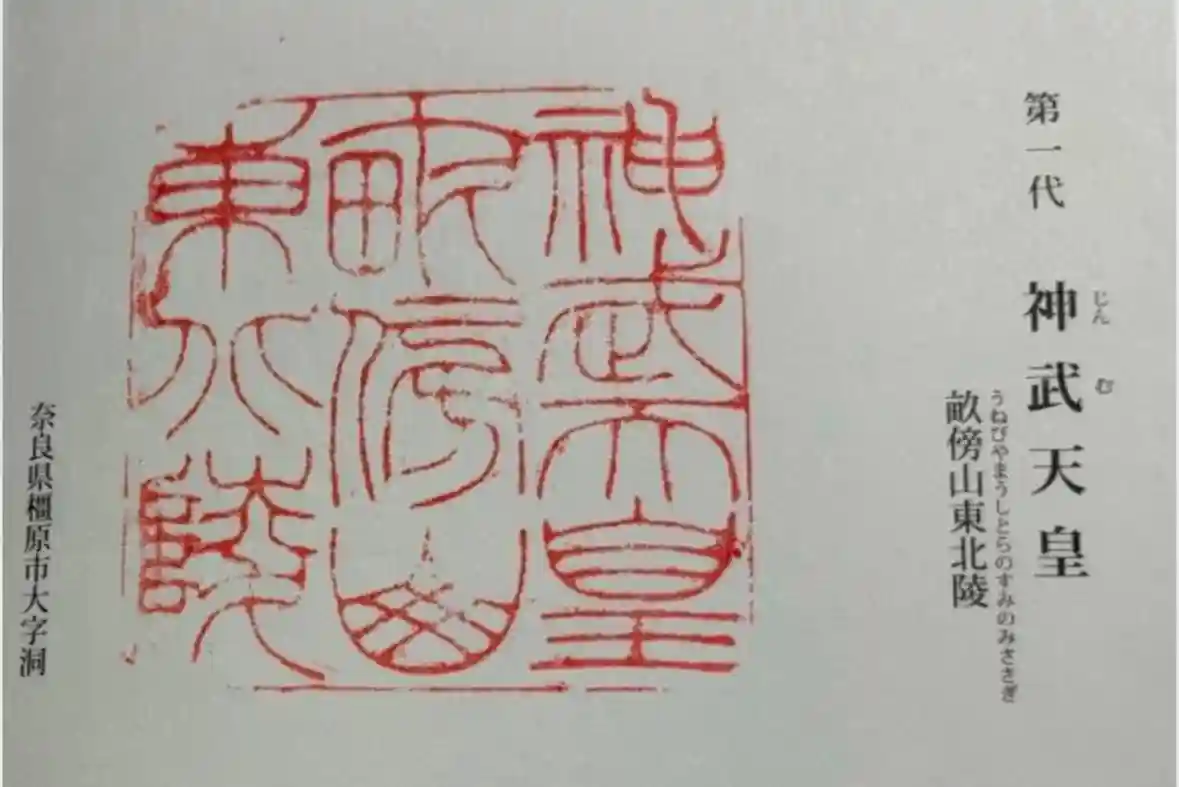 第一代 神武天皇
じんむ
畝傍山東北陵
うねびやまうしとらのすみのみささぎ
神武天皇
畝傍山
東北陵
奈良県橿原市大字洞